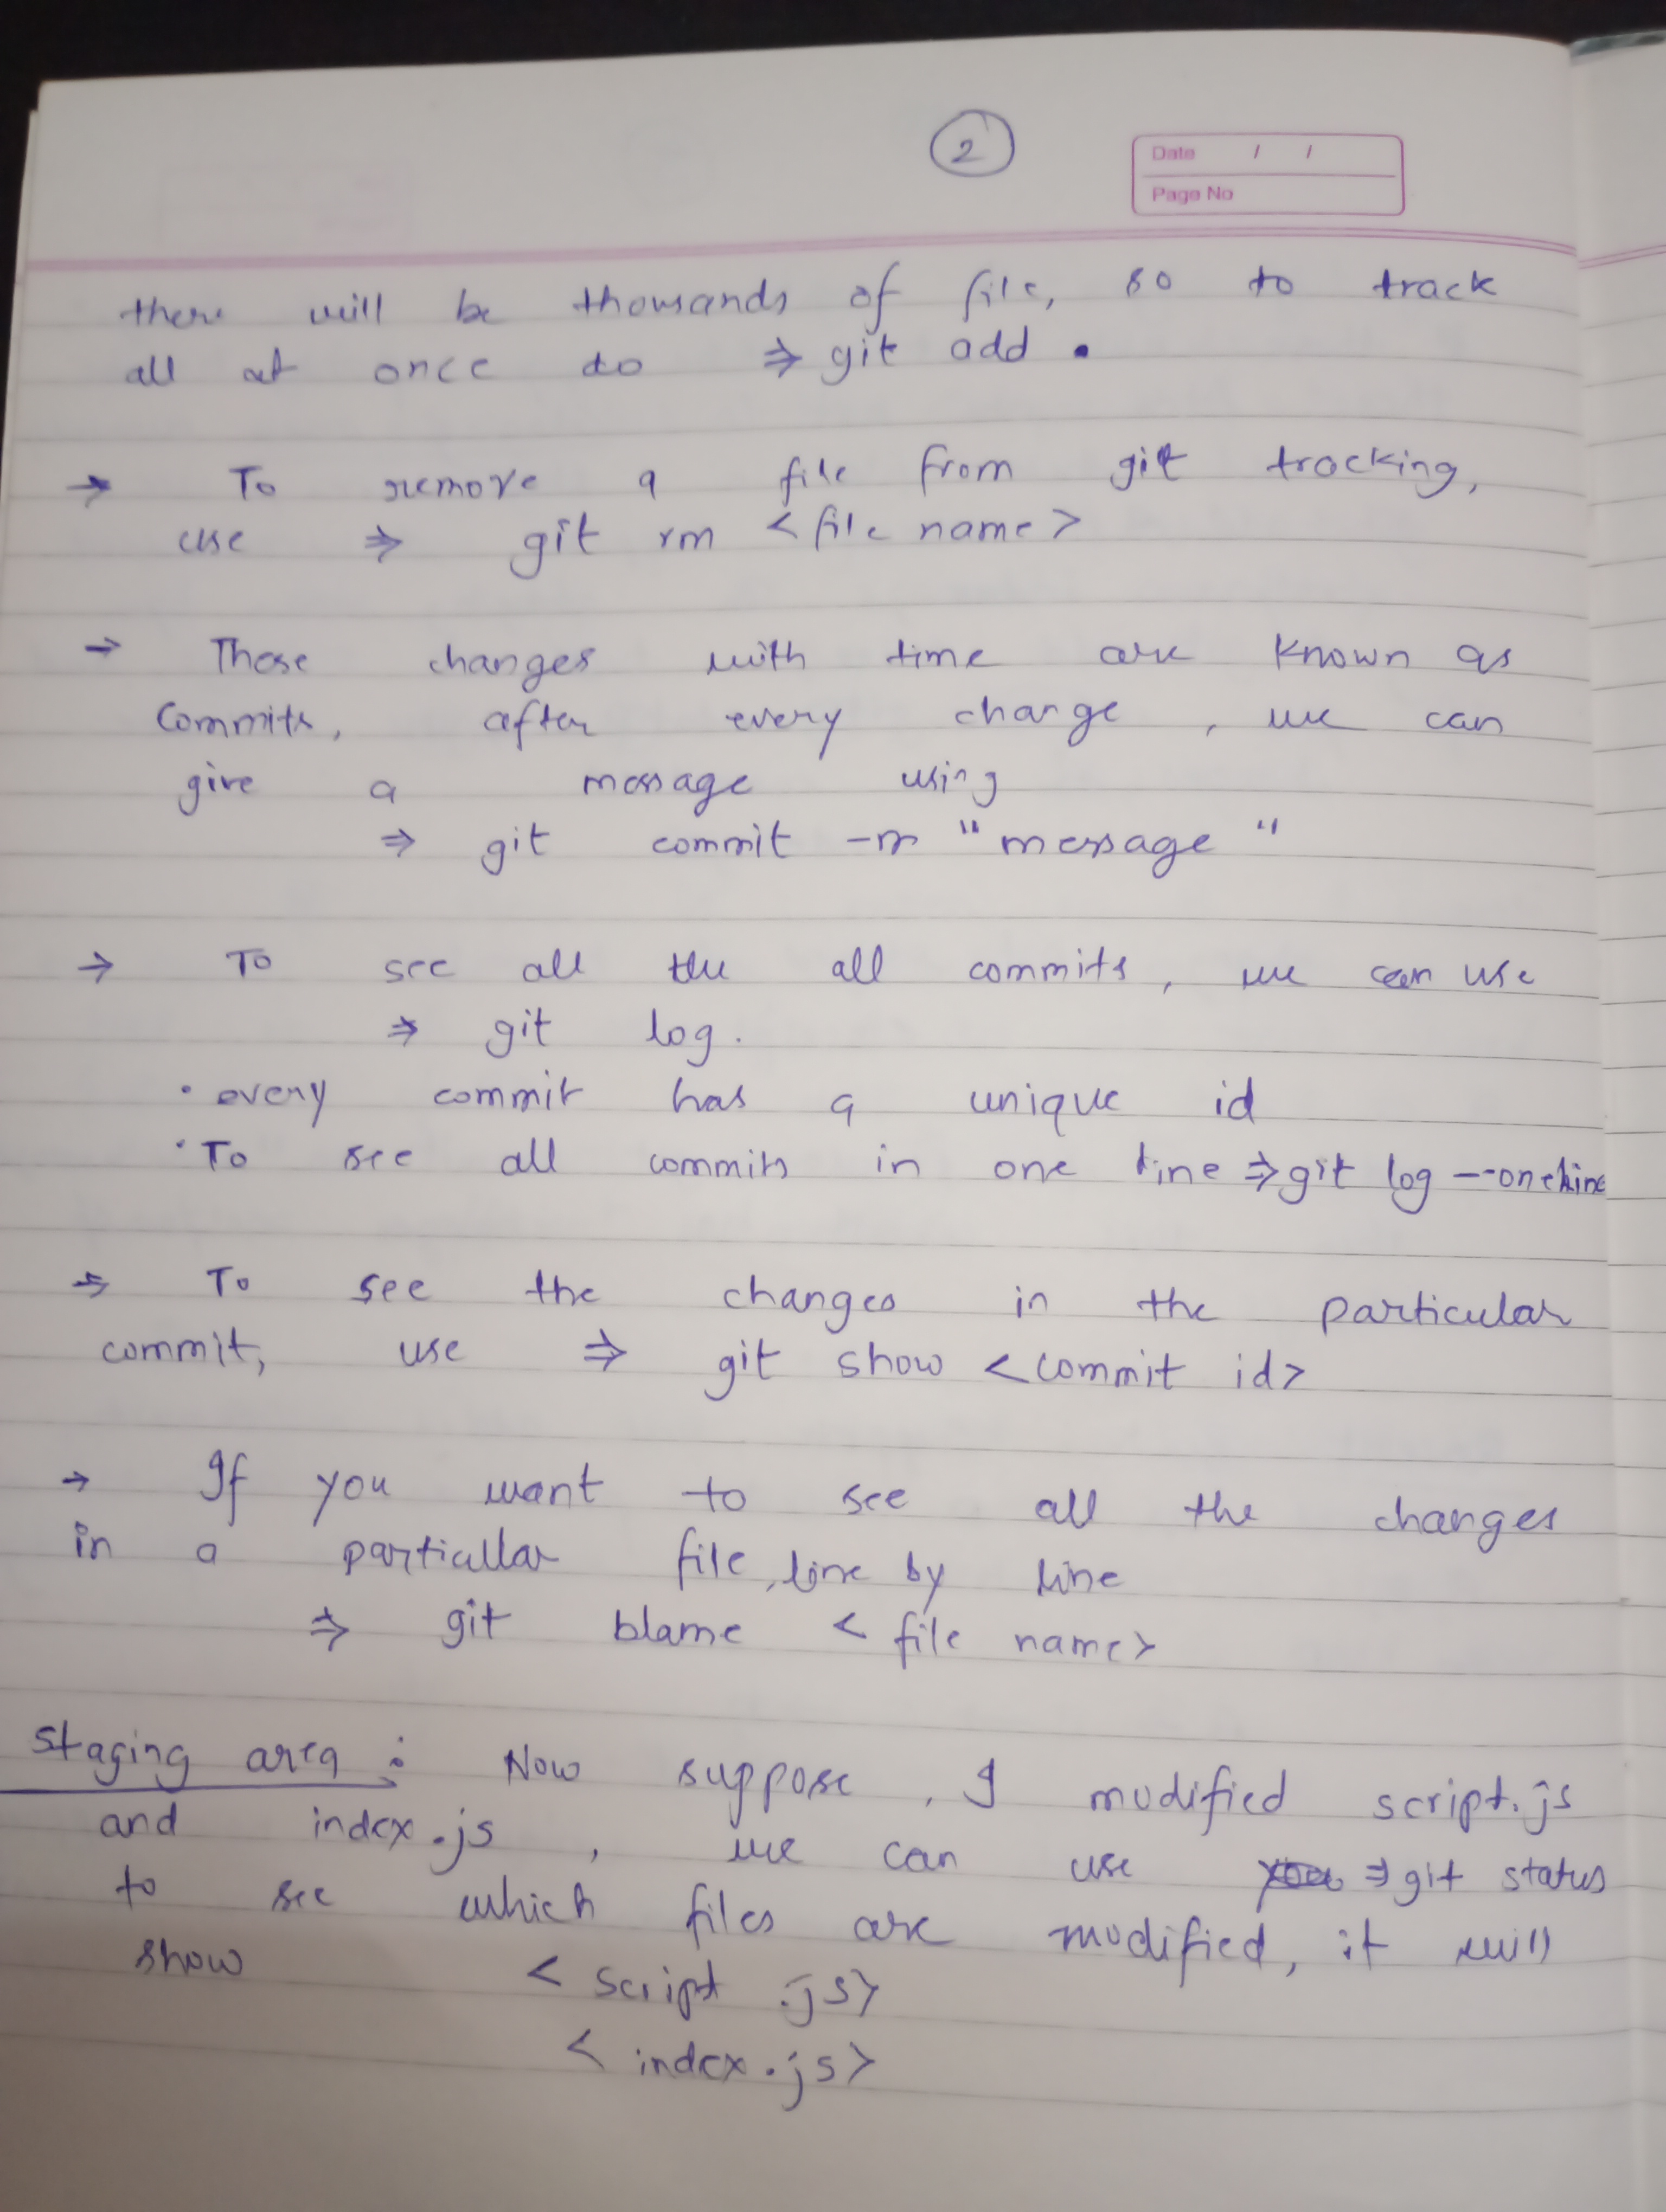 2
Date / /
Page No
there will be thousands of file, so to track
all at once do ⇒ git add .
→ To remove a file from git tracking,
use ⇒ git rm <file name>
→ These changes with time are known as
Commits, after every change, we can
give a message using
⇒ git commit -m "message"
→ To see all the all commits, we can use
⇒ git log.
• every commit has a unique id
• To see all commits in one line ⇒ git log --oneline
→ To see the changes in the particular
commit, use ⇒ git show <commit id>
→ If you want to see all the changes
in a particullar file, line by line
⇒ git blame <file name>
Staging area : Now suppose, I modified script.js
and index.js, we can use ⇒ git status
to see which files are modified, it will
show <script.js>
<index.js>